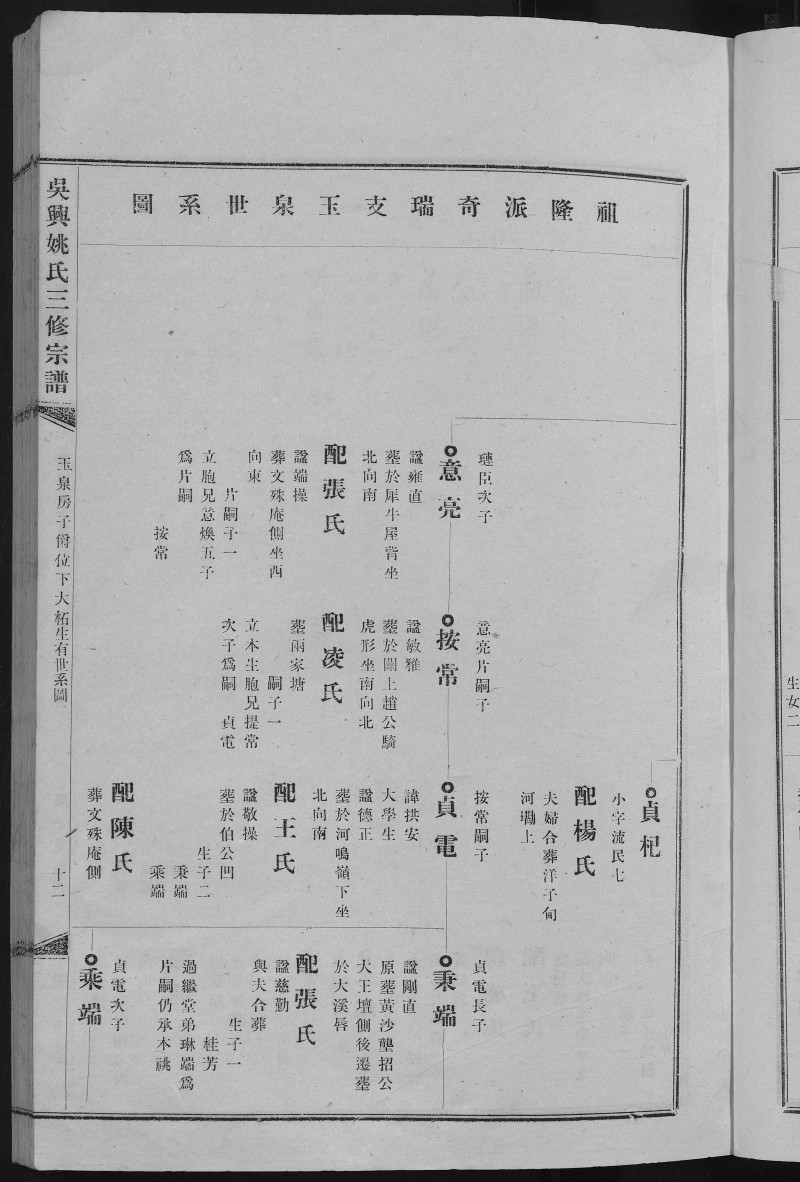 祖隆派奇瑞支玉泉世系圖
璉臣次子
意亮
諡雍直
塟於犀牛屋背坐
北向南
配張氏
諡端操
葬文殊庵側坐西
向東
片嗣子一
立胞兄意煥五子
爲片嗣
按常
意亮片嗣子
按常
諡敏雅
塟於關上趙公騎
虎形坐南向北
配凌氏
塟兩家塘
嗣子一
立本生胞兄提常
次子爲嗣 貞電
貞杞
小字流民七
配楊氏
夫婦合葬洋子甸
河塌上
按常嗣子
貞電
諱拱安
大學生
諡德正
塟於河鳴嶺下坐
北向南
配王氏
諡敬操
塟於伯公凹
生子二
秉端
乘端
配陳氏
葬文殊庵側
貞電長子
秉端
諡剛直
原塟黃沙壟招公
大王壇側後遷塟
於大溪唇
配張氏
諡慈勤
與夫合葬
生子一
桂芳
過繼堂弟琳端爲
片嗣仍承本祧
貞電次子
乘端
吳興姚氏三修宗譜
玉泉房子爵位下大柘生有世系圖
十二
生女二